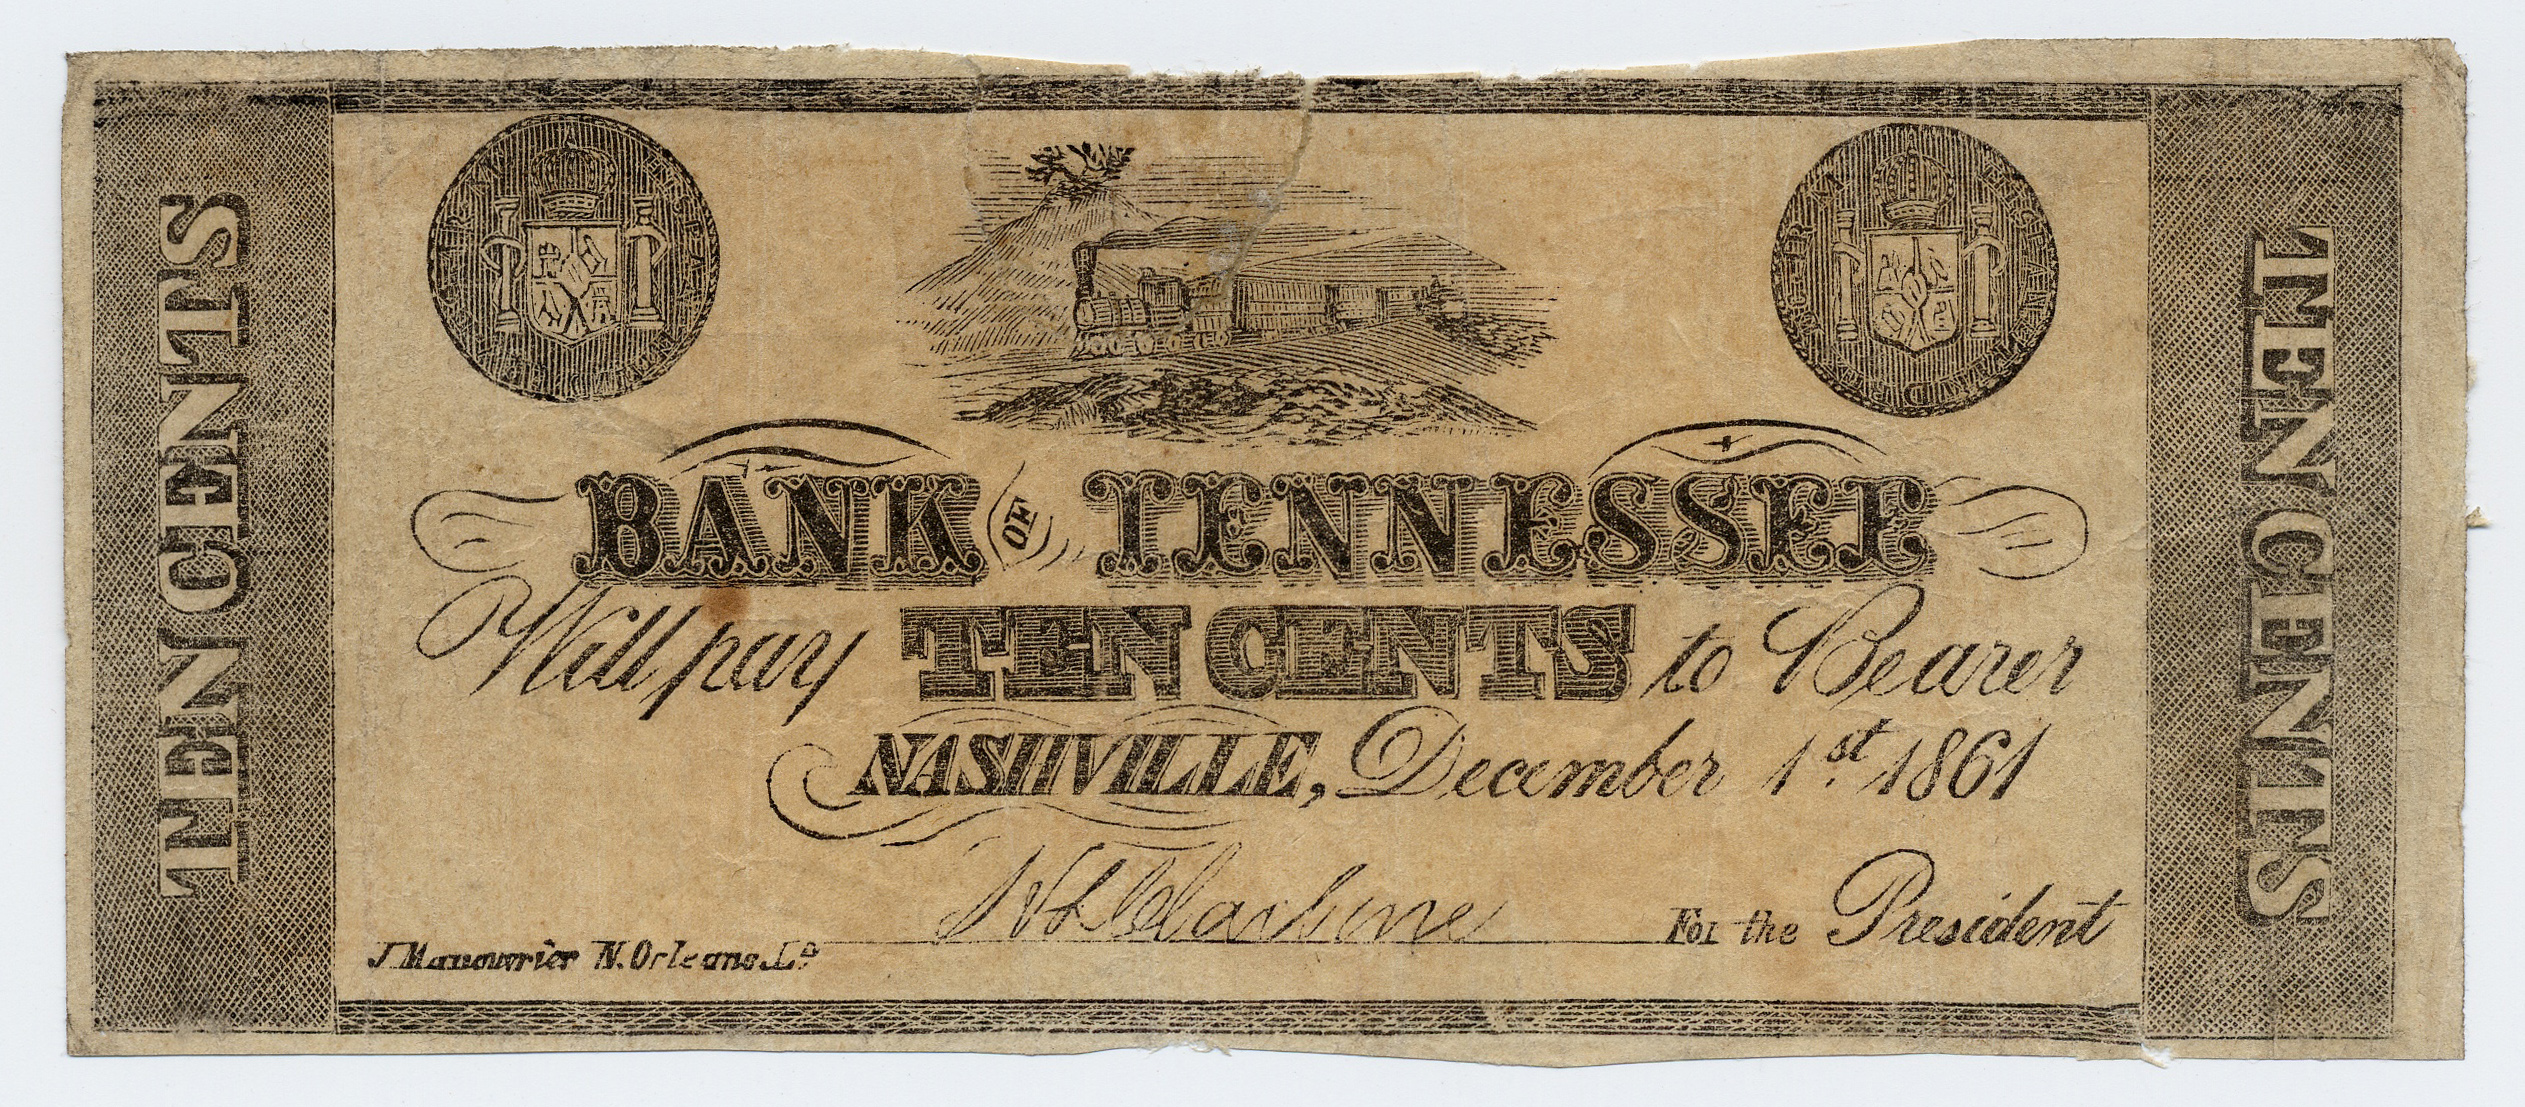 TEN CENTS
BANK OF TENNESSEE
Will pay TEN CENTS to Bearer
NASHVILLE, December 1st. 1861
For the President
J Manouvrier N. Orleans La
TEN CENTS